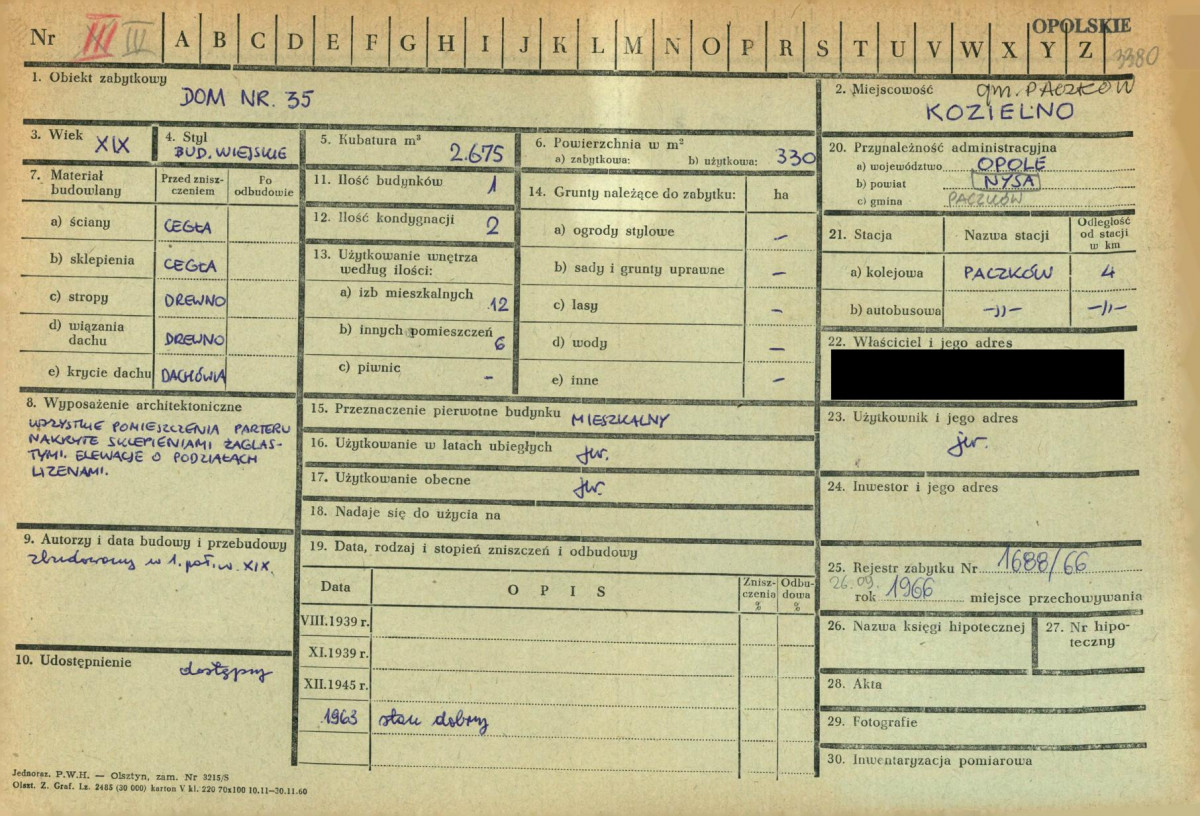 Nr III IV A B C D E F G H I J K L M N O P R S T U V W X Y Z
OPOLSKIE
3380
1. Obiekt zabytkowy
DOM NR. 35
2. Miejscowość gm. PACZKÓW
KOZIELNO
3. Wiek XIX
4. Styl
BUD. WIEJSKIE
5. Kubatura m³
2.675
6. Powierzchnia w m²
a) zabytkowa: b) użytkowa: 330
20. Przynależność administracyjna
a) województwo OPOLE
b) powiat NYSA
c) gmina PACZKÓW
7. Materiał budowlany
Przed zniszczeniem
Po odbudowie
a) ściany CEGŁA
b) sklepienia CEGŁA
c) stropy DREWNO
d) wiązania dachu DREWNO
e) krycie dachu DACHÓWKA
11. Ilość budynków 1
12. Ilość kondygnacji 2
13. Użytkowanie wnętrza
według ilości:
a) izb mieszkalnych 12
b) innych pomieszczeń 6
c) piwnic -
14. Grunty należące do zabytku: ha
a) ogrody stylowe -
b) sady i grunty uprawne -
c) lasy -
d) wody -
e) inne -
21. Stacja Nazwa stacji Odległość od stacji w km
a) kolejowa PACZKÓW 4
b) autobusowa -,,- -,,-
22. Właściciel i jego adres
8. Wyposażenie architektoniczne
WSZYSTKIE POMIESZCZENIA PARTERU
NAKRYTE SKLEPIENIAMI ŻAGLAS-
TYMI. ELEWACJE O PODZIAŁACH
LIZENAMI.
15. Przeznaczenie pierwotne budynku MIESZKALNY
16. Użytkowanie w latach ubiegłych jw.
17. Użytkowanie obecne jw.
18. Nadaje się do użycia na
23. Użytkownik i jego adres
jw.
24. Inwestor i jego adres
9. Autorzy i data budowy i przebudowy
zbudowany w 1. poł. w. XIX.
10. Udostępnienie dostępny
19. Data, rodzaj i stopień zniszczeń i odbudowy
Data OPIS Zniszczenia % Odbudowa %
VIII.1939 r.
XI.1939 r.
XII.1945 r.
1963 stan dobry
25. Rejestr zabytku Nr 1688/66
26.09. rok 1966 miejsce przechowywania
26. Nazwa księgi hipotecznej
27. Nr hipoteczny
28. Akta
29. Fotografie
30. Inwentaryzacja pomiarowa
Jednoraz. P.W.H. — Olsztyn, zam. Nr 3215/S
Olszt. Z. Graf. Lz. 2485 (30 000) karton V kl. 220 70x100 10.11—30.11.60